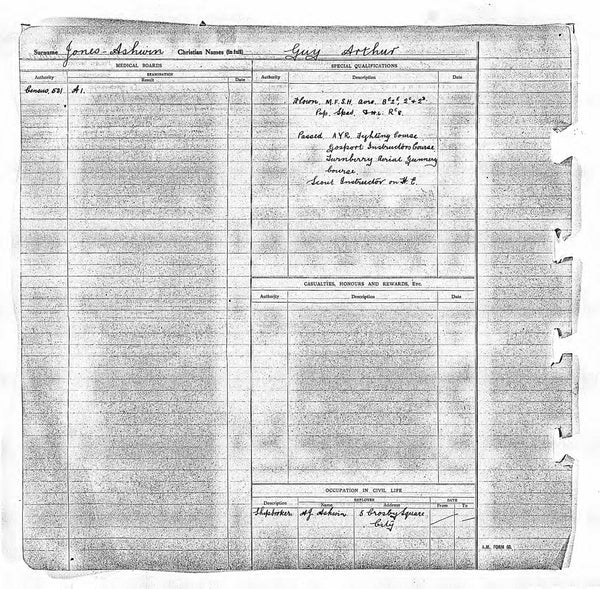 Surname Jones-Ashwin Christian Names (in full) Guy Arthur
MEDICAL BOARDS
Authority EXAMINATION Result Date
Census, 531 A1.
SPECIAL QUALIFICATIONS
Authority Description Date
Flown M.F.S.H. Avro.
Pup. Sped.
Passed AYR Fighting Course
Gosport Instructors Course
Turnberry Aerial Gunnery
Course.
Scout Instructor on H.E.
CASUALTIES, HONOURS AND REWARDS, ETC.
Authority Description Date
OCCUPATION IN CIVIL LIFE
Description EMPLOYER Name Address DATE From To
Shipbroker A.J. Ashwin 5 Crosby Square
City
A.M. FORM 60.